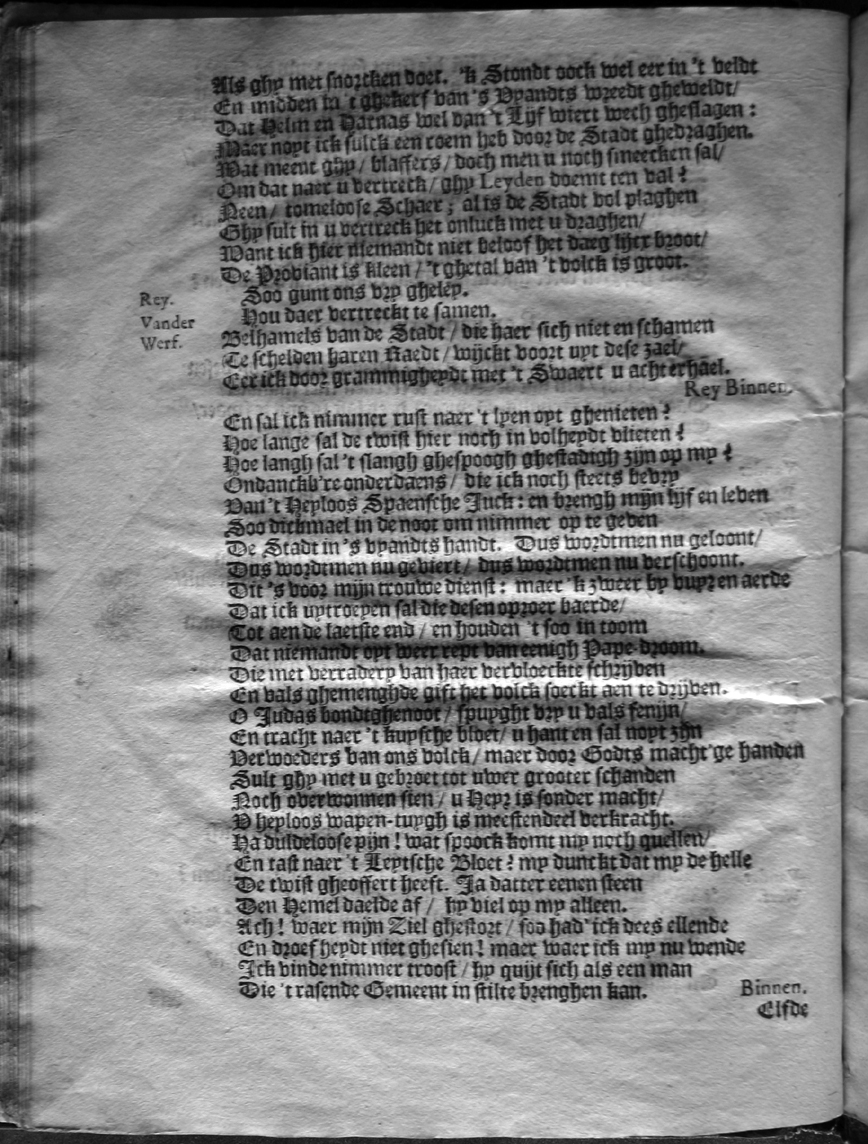 Als ghy met snorcken doet. 'k Stondt oock wel eer in 't veldt
En midden in 't ghekerf van 's Vyandts wreedt gheweldt/
Dat Helm en Harnas wel van 't Lijf wiert wech gheslagen :
Maer noyt ick sulck een roem heb door de Stadt ghedraghen.
Wat meent ghy / blaffers / doch men u noch smeecken sal/
Om dat naer u vertreck / ghy Leyden doemt ten val ?
Neen / tomeloose Schaer ; al is de Stadt vol plaghen
Ghy sult in u vertreck het onluck met u draghen/
Want ick hier niemandt niet beloof het daeghlijcx broot/
De Proviant is kleen / 't ghetal van 't volck is groot.
Rey. Soo gunt ons vry gheley.
Vander Hou daer vertreckt te samen.
Werf. Belhamels van de Stadt / die haer sich niet en schamen
Te schelden haren Raedt / wijckt voort uyt dese zael/
Eer ick door grammigheydt met 't Swaert u achterhael.
Rey Binnen.
En sal ick nimmer rust naer 't lyen oyt ghenieten ?
Hoe lange sal de twist hier noch in volheydt vlieten ?
Hoe langh sal 't slangh ghespoogh ghestadigh zijn op my ?
Ondanckb're onderdaens / die ick noch steets bevry
Van 't Heyloos Spaensche Juck : en brengh mijn lijf en leven
Soo dickmael in de noot om nimmer op te geven
De Stadt in 's vyandts handt. Dus wordtmen nu geloont/
Dus wordtmen nu geviert / dus wordtmen nu verschoont.
Dit 's voor mijn trouwe dienst : maer 'k zweer by vuyr en aerde
Dat ick uytroeyen sal die desen oproer baerde/
Tot aen de laetste end / en houden 't soo in toom
Dat niemandt oyt weer rept van eenigh Pape-droom.
Die met verradery van haer vervloeckte schrijven
En vals ghemenghde gift het volck soeckt aen te drijven.
O Judas bondtghenoot / spuyght vry u vals fenijn/
En tracht naer 't kuysche bloet / u hant en sal noyt zijn
Verwoeders van ons volck / maer door Godts macht'ge handen
Sult ghy met u gebroet tot uwer grooter schanden
Noch overwonnen sien / u Heyr is sonder macht/
V heyloos wapen-tuygh is meestendeel verkracht.
Ha duldeloose pijn ! wat spoock komt my noch quellen/
En tast naer 't Leytsche Bloet ? my dunckt dat my de helle
De twist gheoffert heeft. Ja datter eenen steen
Den Hemel daelde af / hy viel op my alleen.
Ach ! waer mijn Ziel ghestort / soo had' ick dees ellende
En droefheydt niet ghesien ! maer waer ick my nu wende
Ick vinde nimmer troost / hy quijt sich als een man
Die 't rasende Gemeent in stilte brenghen kan.
Binnen.
Elfde